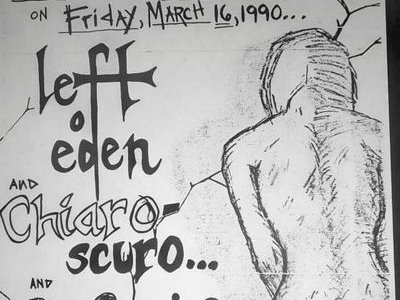 ON Friday, MARCH 16, 1990...
left
of
eden
AND
Chiaro-
scuro...
AND